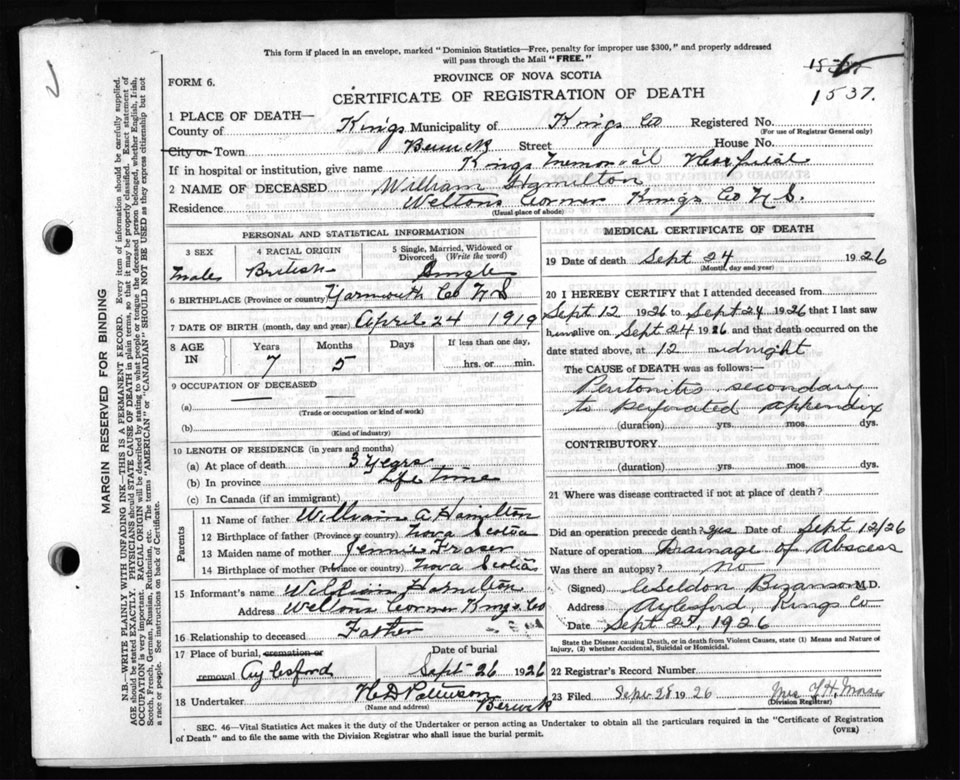 This form if placed in an envelope, marked "Dominion Statistics—Free, penalty for improper use $300," and properly addressed
will pass through the Mail "FREE."
FORM 6.
PROVINCE OF NOVA SCOTIA
CERTIFICATE OF REGISTRATION OF DEATH
1537.
1 PLACE OF DEATH—
County of Kings Municipality of Kings Co Registered No.
(For use of Registrar General only)
City or Town Berwick Street House No.
If in hospital or institution, give name Kings Memorial Hospital
2 NAME OF DECEASED William Hamilton
Residence Weltons Corner Kings Co N S.
(Usual place of abode)
PERSONAL AND STATISTICAL INFORMATION
3 SEX Male
4 RACIAL ORIGIN British
5 Single, Married, Widowed or Divorced (Write the word) Single
6 BIRTHPLACE (Province or country) Yarmouth Co N S
7 DATE OF BIRTH (month, day and year) April 24 1919
8 AGE IN Years 7 Months 5 Days If less than one day, hrs. or min.
9 OCCUPATION OF DECEASED
(a) — —
(Trade or occupation or kind of work)
(b)
(Kind of industry)
10 LENGTH OF RESIDENCE (in years and months)
(a) At place of death 3 years
(b) In province Life time
(c) In Canada (if an immigrant)
Parents
11 Name of father William A Hamilton
12 Birthplace of father (Province or country) Nova Scotia
13 Maiden name of mother Jennie Fraser
14 Birthplace of mother (Province or country) Nova Scotia
15 Informant's name William Hamilton
Address Weltons Corner Kings Co
16 Relationship to deceased Father
17 Place of burial, cremation or removal Aylesford
Date of burial Sept 26 1926
18 Undertaker H D
(Name and address) Berwick
MEDICAL CERTIFICATE OF DEATH
19 Date of death Sept 24 1926
(Month, day and year)
20 I HEREBY CERTIFY that I attended deceased from
Sept 12 1926 to Sept 24 1926 that I last saw
him alive on Sept 24 1926 and that death occurred on the
date stated above, at 12 midnight
The CAUSE of DEATH was as follows:—
Peritonitis secondary
to perforated appendix
(duration) yrs. mos. dys.
CONTRIBUTORY
(duration) yrs. mos. dys.
21 Where was disease contracted if not at place of death?
Did an operation precede death? yes Date of Sept 12/26
Nature of operation Drainage of Abscess
Was there an autopsy? No
(Signed) M.D.
Address Aylesford, Kings Co
Date Sept 27, 1926
State the Disease causing Death, or in death from Violent Causes, state (1) Means and Nature of
Injury, (2) whether Accidental, Suicidal or Homicidal.
22 Registrar's Record Number
23 Filed Sept 28 1926 Mrs
(Division Registrar)
SEC. 46—Vital Statistics Act makes it the duty of the Undertaker or person acting as Undertaker to obtain all the particulars required in the "Certificate of Registration
of Death" and to file the same with the Division Registrar who shall issue the burial permit.
(OVER)
MARGIN RESERVED FOR BINDING
N.B.—WRITE PLAINLY WITH UNFADING INK—THIS IS A PERMANENT RECORD. Every item of information should be carefully supplied.
AGE should be stated EXACTLY. PHYSICIANS should STATE CAUSE OF DEATH in plain terms, so that it may be properly classified. Exact statement of
OCCUPATION is very important. RACIAL ORIGIN will be described by stating to what people or tongue the deceased person belonged, whether English, Irish,
Scotch, French, German, Russian, Ruthenian, etc. The terms "AMERICAN" or "CANADIAN" SHOULD NOT BE USED as they express citizenship but not
a race or people. See instructions on back of Certificate.